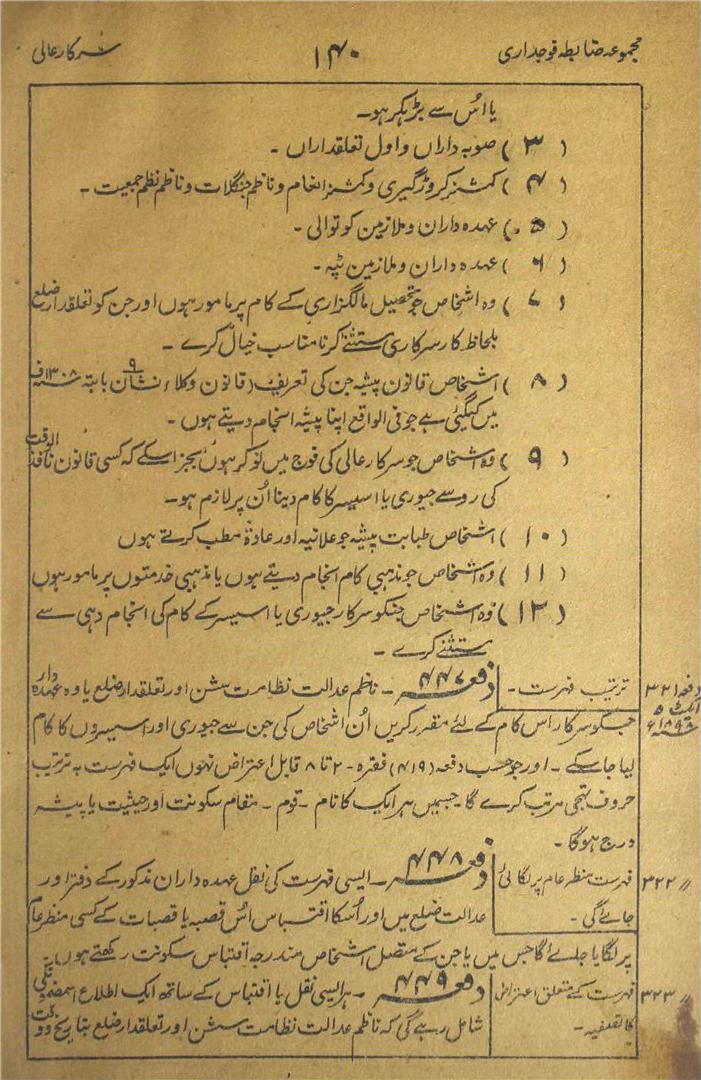 مجموعہ ضابطہ فوجداری ۱۴۰ سرکار عالی
یا اُس سے بڑہکر ہو۔
( ۳ ) صوبہ داراں و اول تعلقداراں ۔
( ۴ ) کمشنر کروڑگیری و کمشنر انعام و ناظم جنگلات و ناظم نظم جمعیت ۔
( ۵ ) عہدہ داران و ملازمین کوتوالی ۔
( ۶ ) عہدہ داران و ملازمین ٹپہ ۔
( ۷ ) وہ اشخاص جو تحصیل مالگزاری کے کام پر مامور ہوں اور جن کو تعلقدار ضلع
بلحاظ کار سرکاری مستثنے کرنا مناسب خیال کرے ۔
( ۸ ) اشخاص قانون پیشہ جن کی تعریف ( قانون وکلاء نشان ۹ بابتہ ۱۳۰۸ ف
میں کیگئی ہے جو فی الواقع اپنا پیشہ انجام دیتے ہوں ۔
( ۹ ) وہ اشخاص جو سرکار عالی کی فوج میں نوکر ہوں بجز اسکے کہ کسی قانون نافذ الوقت
کی رو سے جیوری یا اسیسر کا کام دینا اُن پر لازم ہو۔
( ۱۰ ) اشخاص طبابت پیشہ جو علانیہ اور عادۃً مطب کرتے ہوں
( ۱۱ ) وہ اشخاص جو مذہبی کام انجام دیتے ہوں یا مذہبی خدمتوں پر مامور ہوں
( ۱۲ ) وہ اشخاص جنکو سرکار جیوری یا اسیسر کے کام کی انجام دہی سے
مستثنے کرے ۔
دفعہ ۳۲۱ ایکٹ ۵ ۱۸۹۸ء
ترتیب فہرست ۔
دفعہ ۴۴۷ ۔ ناظم عدالت نظامت سشن اور تعلقدار ضلع یا وہ عہدہ دار
جسکو سرکار اس کام کے لئے مقرر کریں اُن اشخاص کی جن سے جیوری اور اسیسروں کا کام
لیا جا سکے ۔ اور جو حسب دفعہ (۴۱۹) فقرہ ۔ ۲ تا ۸ قابل اعتراض نہوں ایک فہرست بہ ترتیب
حروف تہجی مرتب کرے گا ۔ جسمیں ہر ایک کا نام ۔ قوم ۔ مقام سکونت اور حیثیت یا پیشہ
درج ہو گا ۔
〃 ۳۲۲
فہرست منظر عام پر لگائی
جائے گی ۔
دفعہ ۴۴۸ ۔ ایسی فہرست کی نقل عہدہ داران مذکور کے دفتر اور
عدالت ضلع میں اور اُسکا اقتباس اُس قصبہ یا قصبات کے کسی منظر عام
پر لگایا جائے گا جس میں یا جن کے متصل اشخاص مندرجہ اقتباس سکونت رکھتے ہوں۔
〃 ۳۲۳
فہرست کے متعلق اعتراض
کا تصفیہ ۔
دفعہ ۴۴۹ ۔ ہر ایسی نقل یا اقتباس کے ساتھ ایک اطلاع اس مضمون کی
شامل رہے گی کہ ناظم عدالت نظامت سشن اور تعلقدار ضلع بتاریخ و وقت